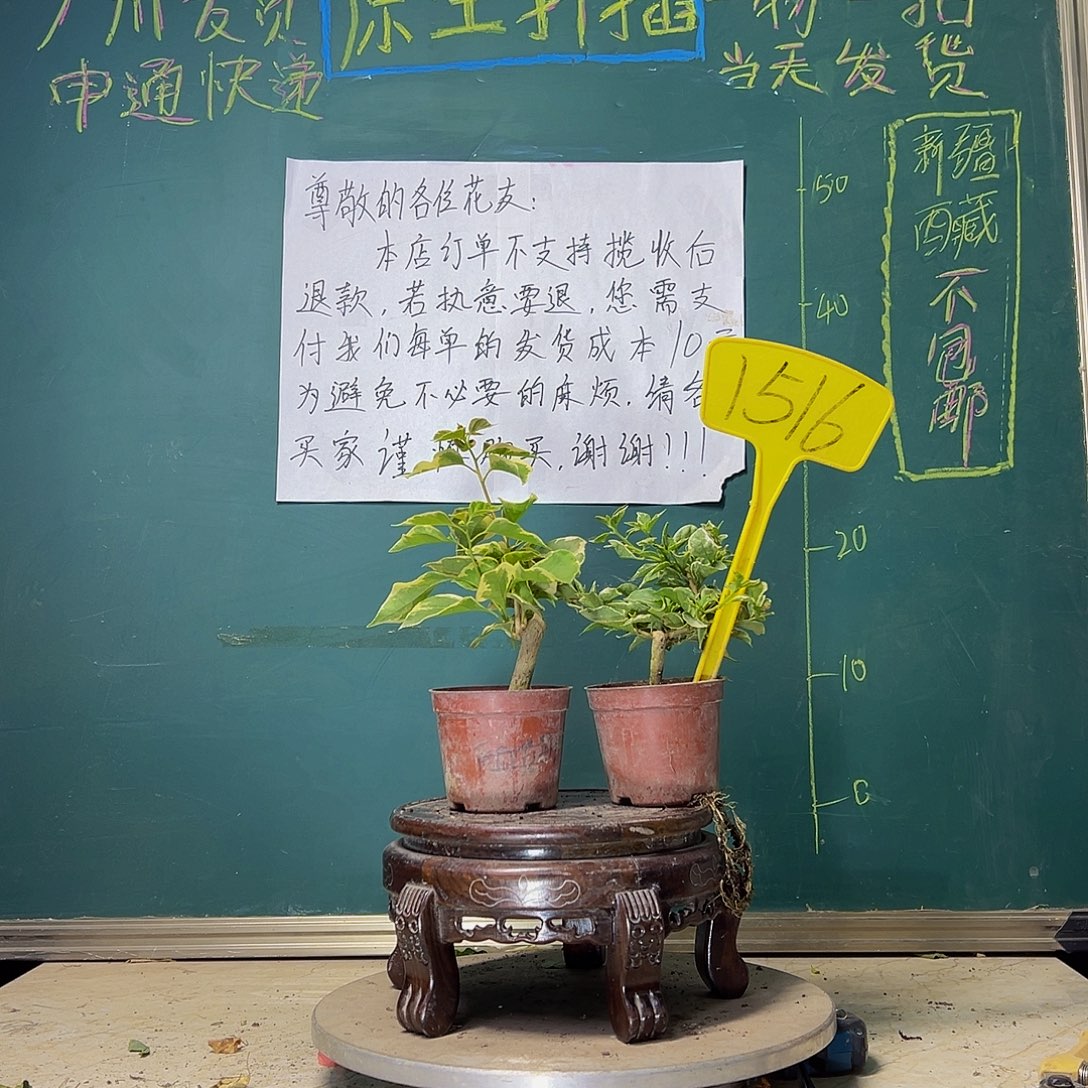 广州发货 原土扦插 一物一拍
申通快递
当天发货
尊敬的各位花友:
本店订单不支持揽收后
退款,若执意要退,您需支
付我们每单的发货成本10
为避免不必要的麻烦.请各
买家谨 买,谢谢!!!
1516
50
40
20
10
0
新疆
西藏
不
包
邮